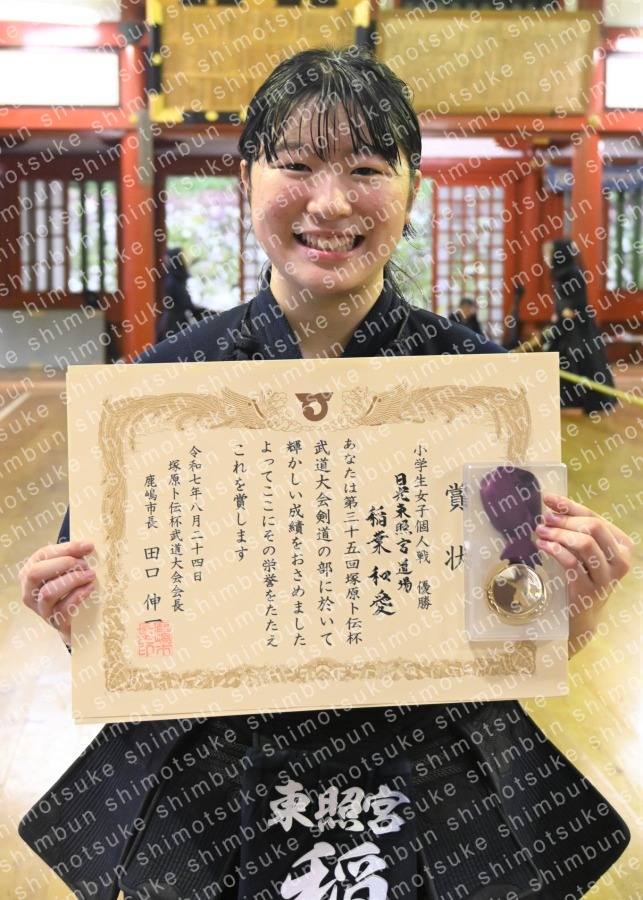 賞状
小学生女子個人戦 優勝
日光東照宮道場
稲葉 和愛
あなたは第三十五回塚原卜伝杯
武道大会剣道の部に於いて
輝かしい成績をおさめました
よってここにその栄誉をたたえ
これを賞します
令和七年八月二十四日
塚原卜伝杯武道大会会長
鹿嶋市長 田口 伸一
東照宮
稲
shimotsuke shimbun